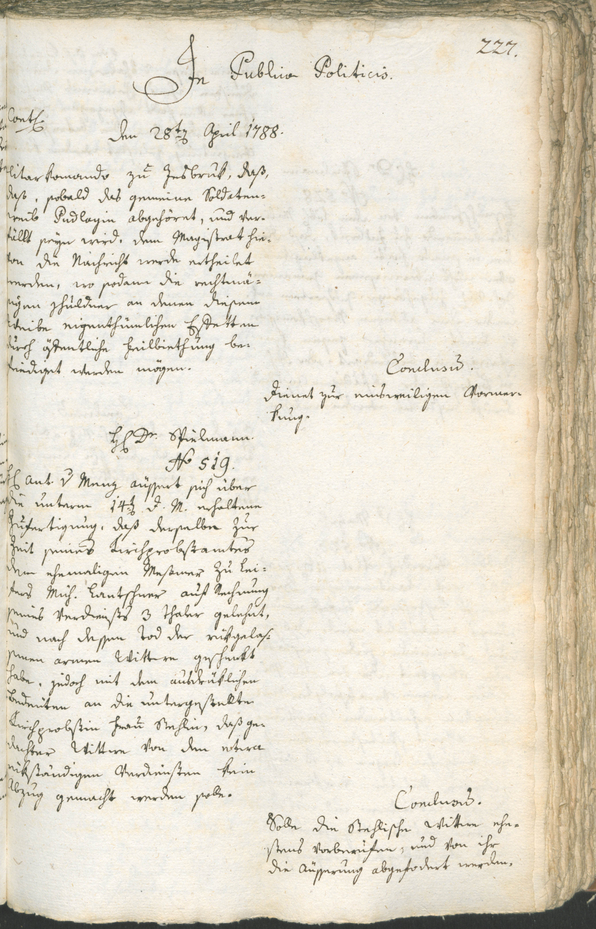 227.
In Publico Politicis.
Den 28ten April 1788.
litarkomando zu Insbruk, daß,
daß, sobald das gemeine Soldaten-
weib Pudlagin abgehöret, und ver-
fällt seyn wird, dem Magistrat hie-
von die Nachricht werde ertheilet
werden, wo sodann die rechtmä-
ßigen an denen diesem
Weibe eigenthümlichen Effetten
durch öffentliche Feilbiethung be-
friediget werden mögen.
Conclusum.
Dienet zur einsweiligen Vormer-
kung.
H. Dr. Spielmann.
No 519.
H. Ant. v Menz äussert sich über
die unterm 14ten d. M. erhaltene
Zufertigung, daß derselbe zur
Zeit seines Kirchprobstamtes
dem ehemaligen Meßmer zu Lei-
fers Mich. Lantschner auf Rechnung
seines Verdiensts 3 Thaler gelehnt,
und nach dessen Tod der rükgelas-
senen armen Wittwe geschenkt
habe, jedoch mit dem ausdrüklichen
Bedeuten an die untergestellte
Kirchprobstin Frau Stehlin, daß ge-
dachter Wittwe von den etwa
rükständigen Verdiensten kein
Abzug gemacht werden solle.
Conclusum.
Solle die Stehlische Wittwe ehe-
stens vorberufen, und von ihr
die Äusserung abgefodert werden,